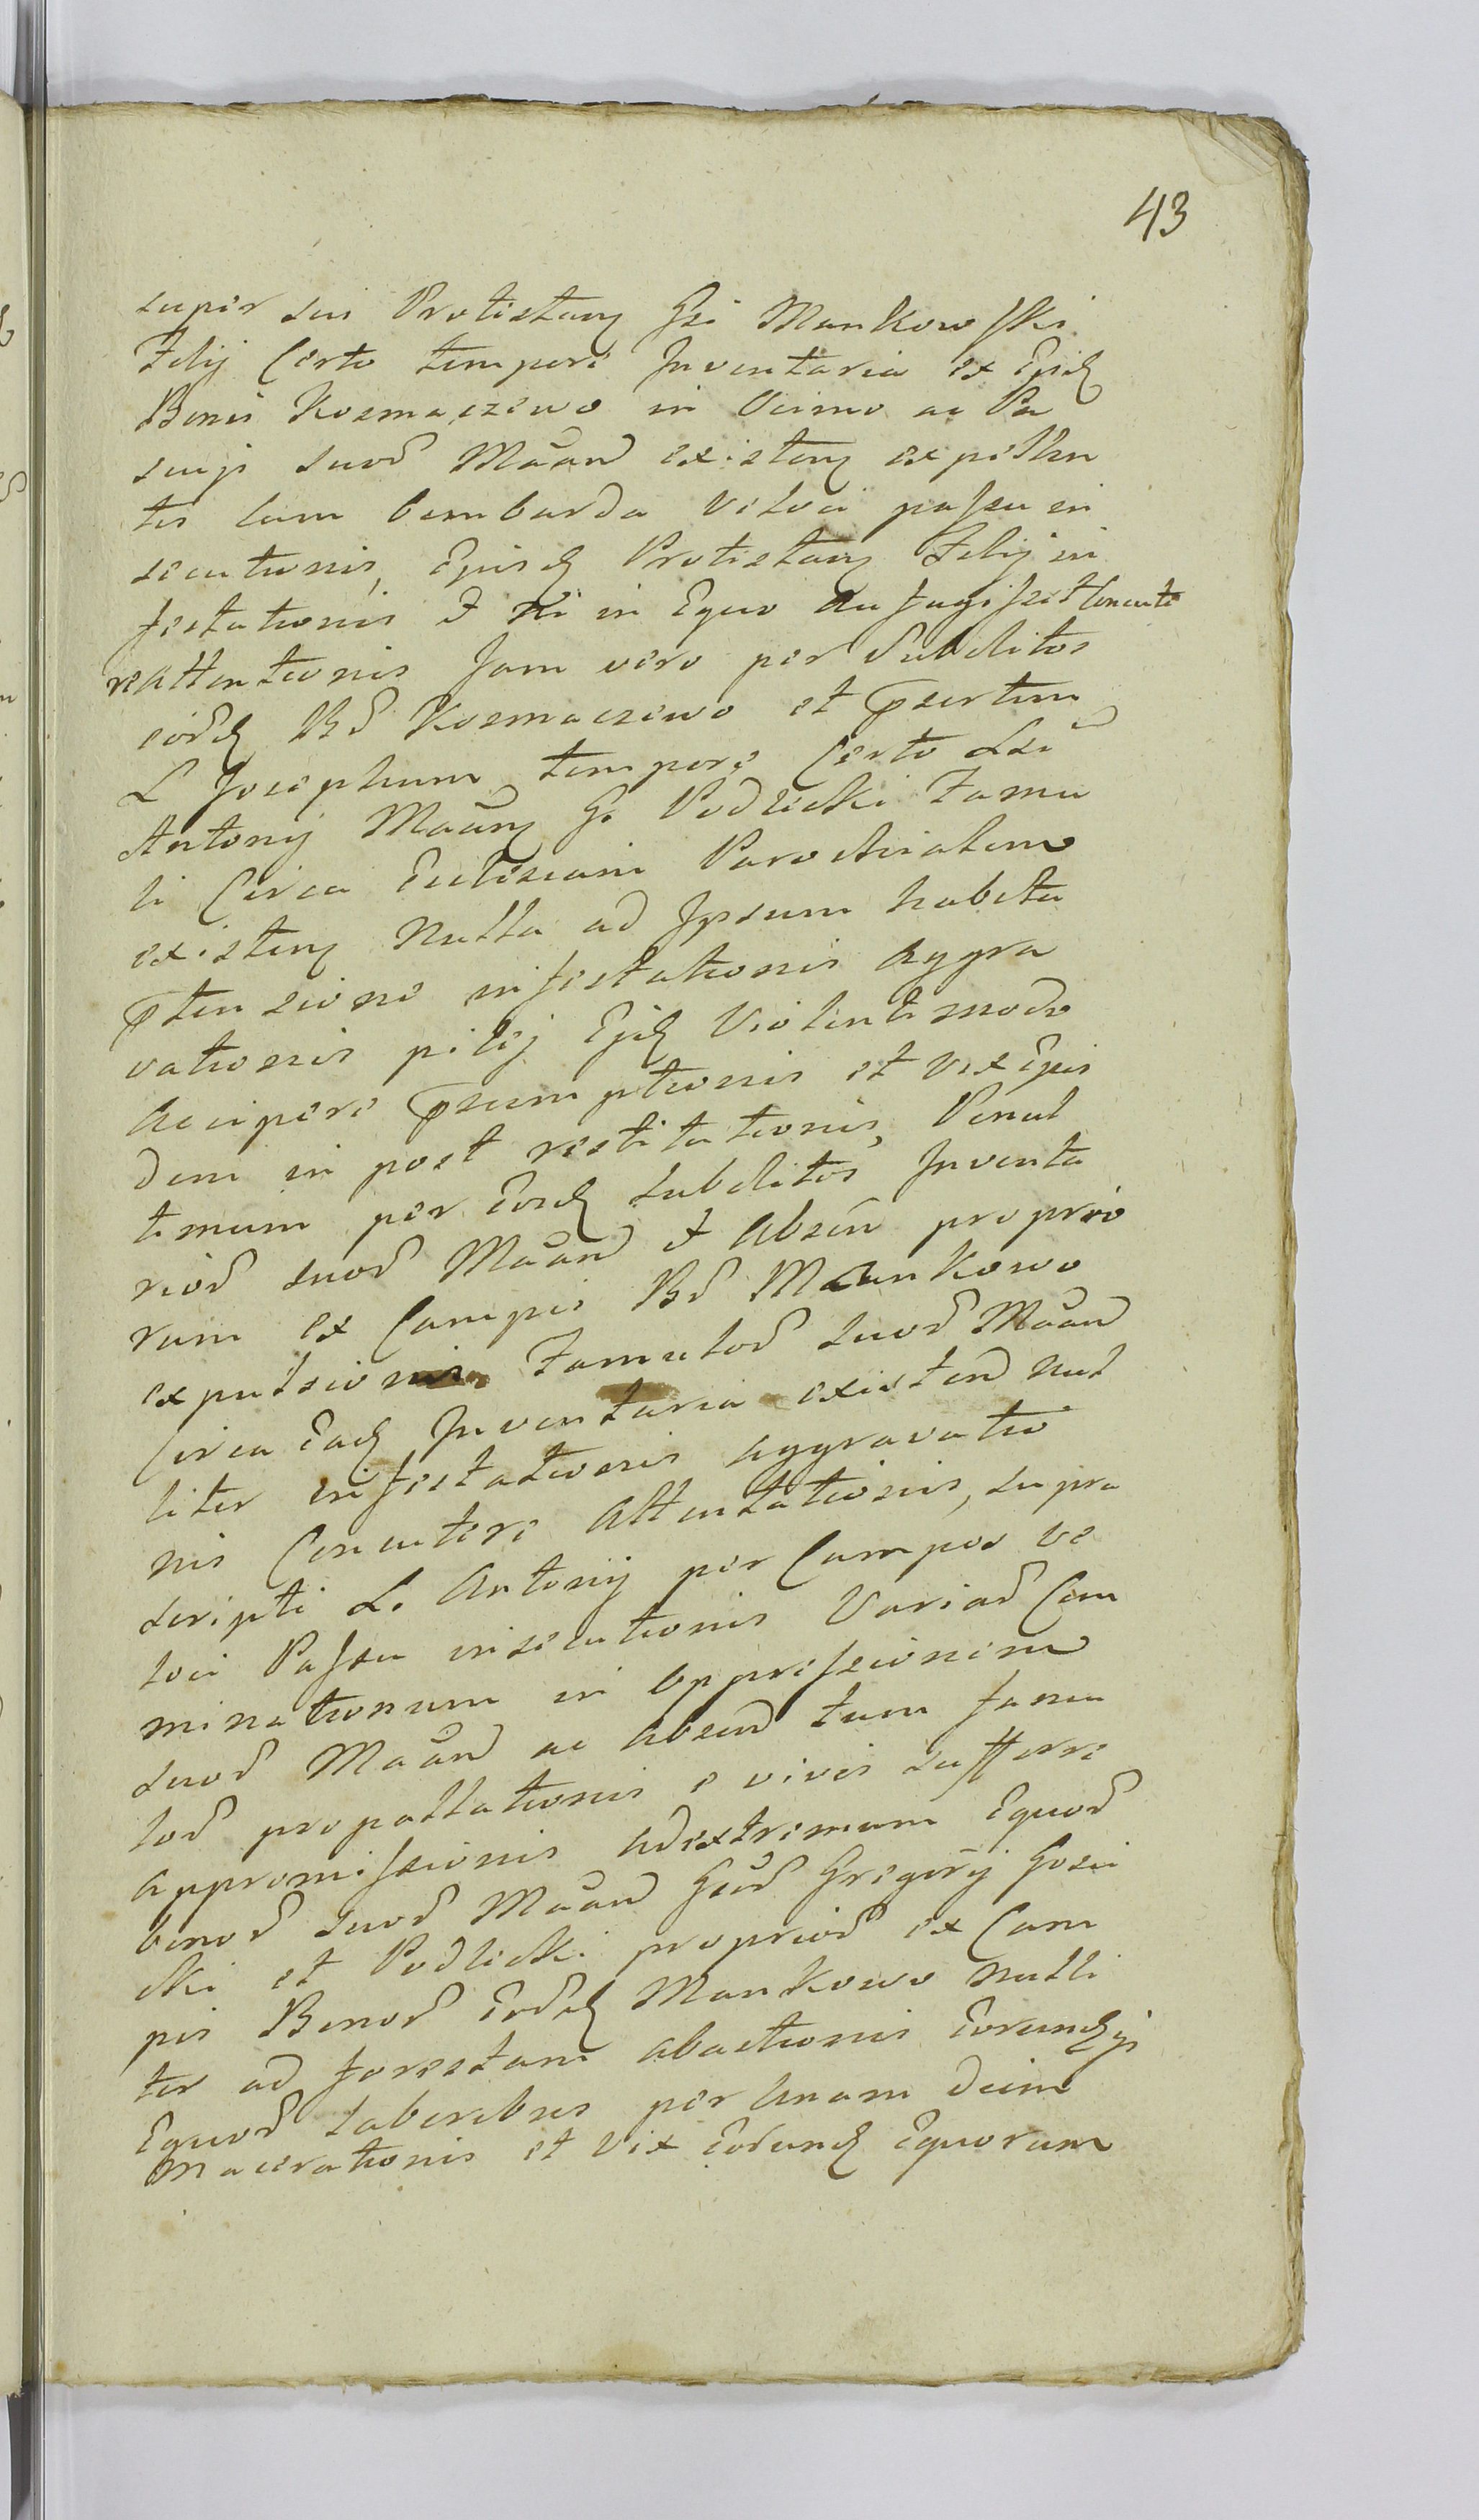 43
super sui Protestanṭ Gsi Mankowski
Filij Certo tempore Inventaria ex Ejusd
Bonis Kozmaczewo in Vicino ac Pa
scuji suoȓ Maãnd existenṭ expellen
tis cum bombarda veloci passu in
secutionis, Ejusd Protestanṭ Filij in
festationis & ni in Equo Aufugisset Concute
re attentionis Jam vero per Subditos
eoȓd Bȓ Kozmaczewo et pȓsertim
L Josephum tempore Certo Lti
Antonij Maãnṭ G. Podlecki Famu
li Circa Ecclesiam Parochialem
existenṭ Nulla ad Ipsum habita
pȓtensione infestationis Aggra
vationis pilej Ejusd Violenti modo
Accipere pȓsumptionis et vix Ejus
dem in post restitutionis, Penul
timum per Eosd Subditos Inventa
rioȓ suoȓ Maãnd & Absen proprio
rum ex Campis Bȓ Mankowo
expulsionis Famuloȓ suoȓ Maãnd
Circa Ead Inventaria existend Nul
liter infestationis aggravatio
nis Concutere Attentationis, supra
scripti L. Antonij per Campos ve
loci Passu insecutionis Variaȓ Com
minationum in oppressionem
suoȓ Maãnd ac Absend tum famu
loȓ propallationis e vivis sufferre
Appromissionis adextremum Equoȓ
binoȓ suoȓ Maãnd Gȓ Gregorij Gosci
cki et Podlecki proprioȓ ex Cam
pis Bonoȓ Eoȓd Mankowo Nulli
ter ad forestam abactionis Eorundṭ
Equoȓ laboribus per Unam Diem
Macerationis et vix Eorund Equorum